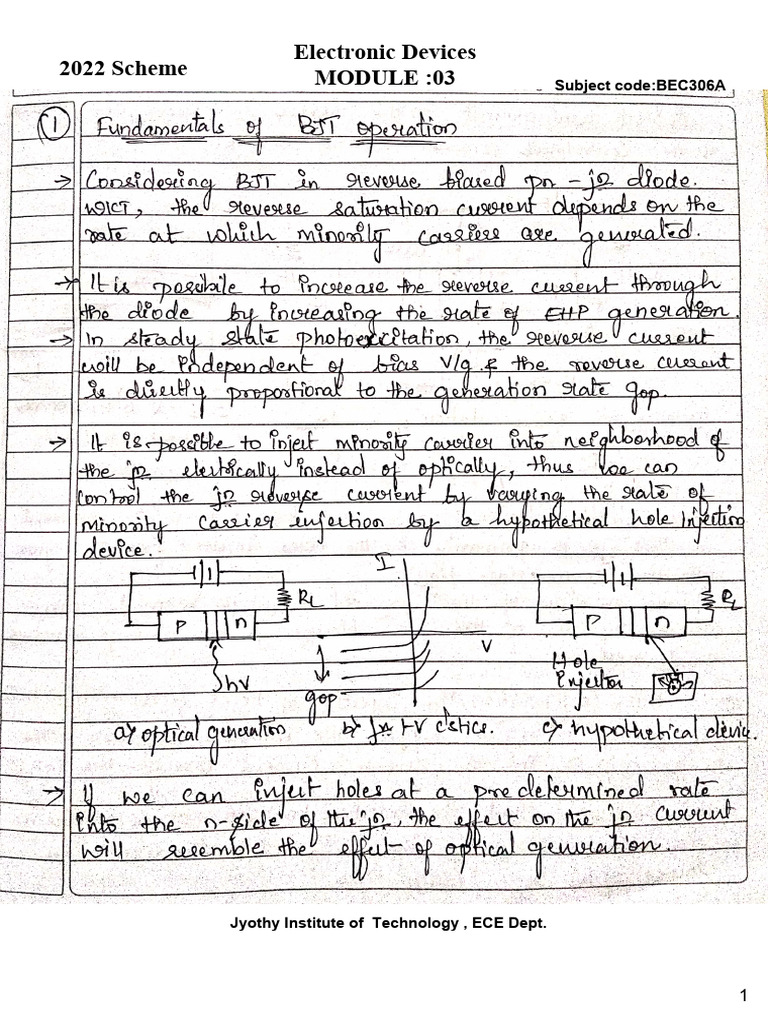 Electronic Devices
2022 Scheme
MODULE :03
Subject code:BEC306A
1 Fundamentals of BJT operation
→ Considering BJT in reverse biased pn-jn diode.
WKT, the reverse saturation current depends on the
rate at which minority carriers are generated.
→ It is possibile to increase the reverse current through
the diode by increasing the rate of EHP generation.
→ In steady state photoexcitation, the reverse current
will be independent of bias V/g. & the reverse current
is directly proportional to the generation rate gop.
→ It is possible to inject minority carrier into neighborhood of
the jn electrically instead of optically, thus we can
control the jn reverse current by varying the rate of
minority carrier injection by a hypothetical hole injection
device.
I
RL
RL
P n
P n
V
hν
gop
Hole
Injector
a) optical generation b) jn I-V c'stics. c) hypothetical device.
→ If we can inject holes at a predetermined rate
into the n-side of the jn, the effect on the jn current
will resemble the effect of optical generation.
Jyothy Institute of Technology , ECE Dept.
1